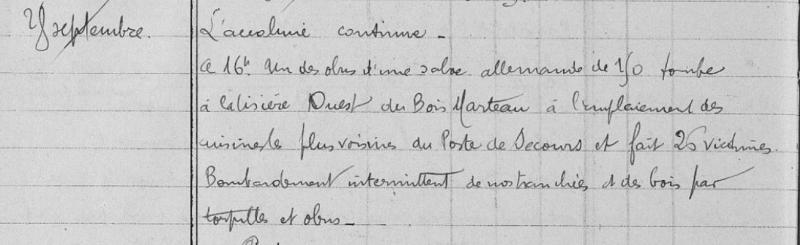 28 septembre. L'accalmie continue -
à 16h. Un des obus d'une salve allemande de 150 tombe
à la lisière Ouest du Bois Marteau à l'emplacement des
cuisines les plus voisines du Poste de Secours et fait 26 victimes.
Bombardement intermittent de nos tranchées et des bois par
torpilles et obus -